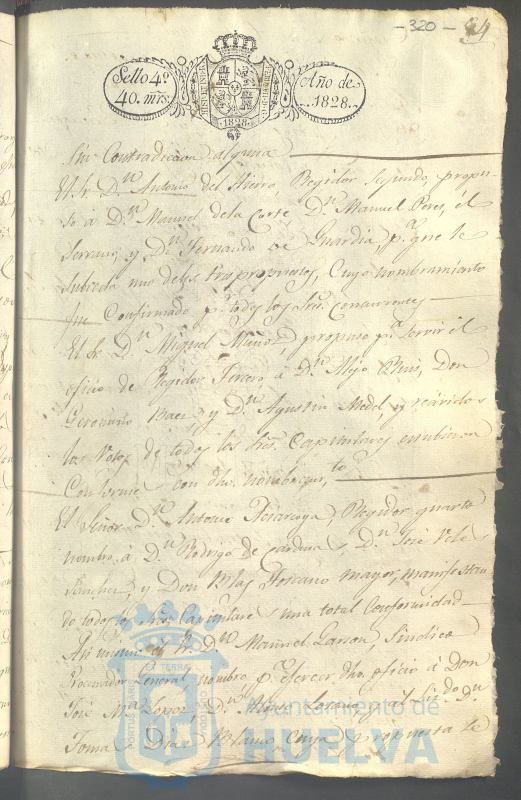 - 320 - 84
Sello 4º
40. mrs.
HISPANIARUM
1828
Año de
1828.
Sin Contradiccion alguna
El Sr. Dn. Antonio del Hierro, Regidor segundo, propu-
so á Dn. Manuel de la Corte, Dn. Manuel Peres, el
Serrano, y Dn. Fernando de Guardia pa. que le
subceda uno de los tres propuestos, Cuyo nombramiento
fue Confirmado pr. todos los Sres. Concurrentes
El Sr. Dn. Miguel Muñoz propuso pa. servir el
oficio de Regidor Tercero, á Dn. Alejo Ruis, Don
Geronimo Baez, y Dn. Agustin Medel y recividos
los Votos de todos los Sres. Capitulares estubieron
Conforme con dho. nombram.to
El Señor Dn. Antonio Regidor quarto
nombró á Dn. Rodrigo de Cardenas, Dn. José Veles
Sanchez, y Don Blas Toscano mayor, manifestan
do todos los Sres. Capitulares una total Conformidad
Asi mismo el Sr. Dn. Manuel Garson, Sindico
Procurador General nombró pa. Egercer dho. oficio á Don
José Ma. Lopez, Dn. Lozano, y Dn.
Tomas Dias Blanco, Cuya propuesta fe
PORTUS MARIS ET TERRAE CUSTODIA
Ayuntamiento de
HUELVA